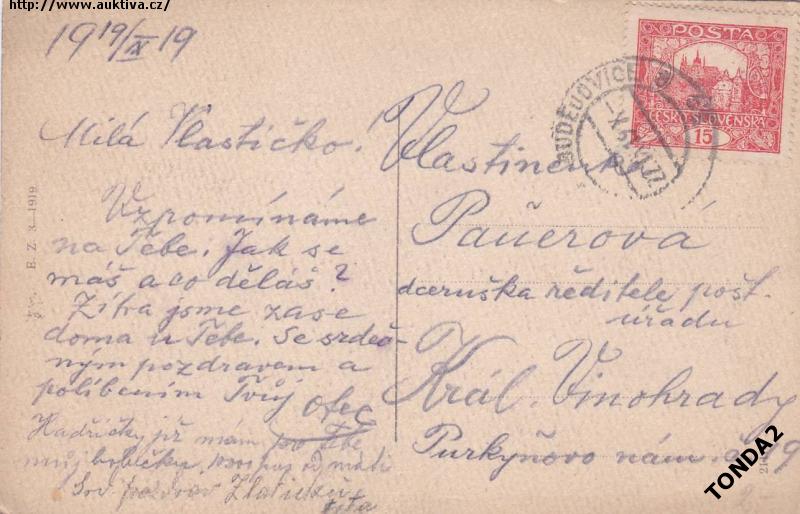 http://www.auktiva.cz/
1919/X 19
Milá Vlastičko!
Vzpomínáme
na Tebe. Jak se
máš a co děláš?
Zítra jsme zase
doma u Tebe. Se srdeč-
ným pozdravem a
políbením Tvůj otec
již mám
Srd. pozdrav
B. Z. 3.-1919.
POSTA
ČESKO-SLOVENSKÁ
15
BUDĚJOVICE
Pauerová
dceruška ředitele pošt.
úřadu
Král. Vinohrady
Purkyňovo nám. č. 9
TONDA2